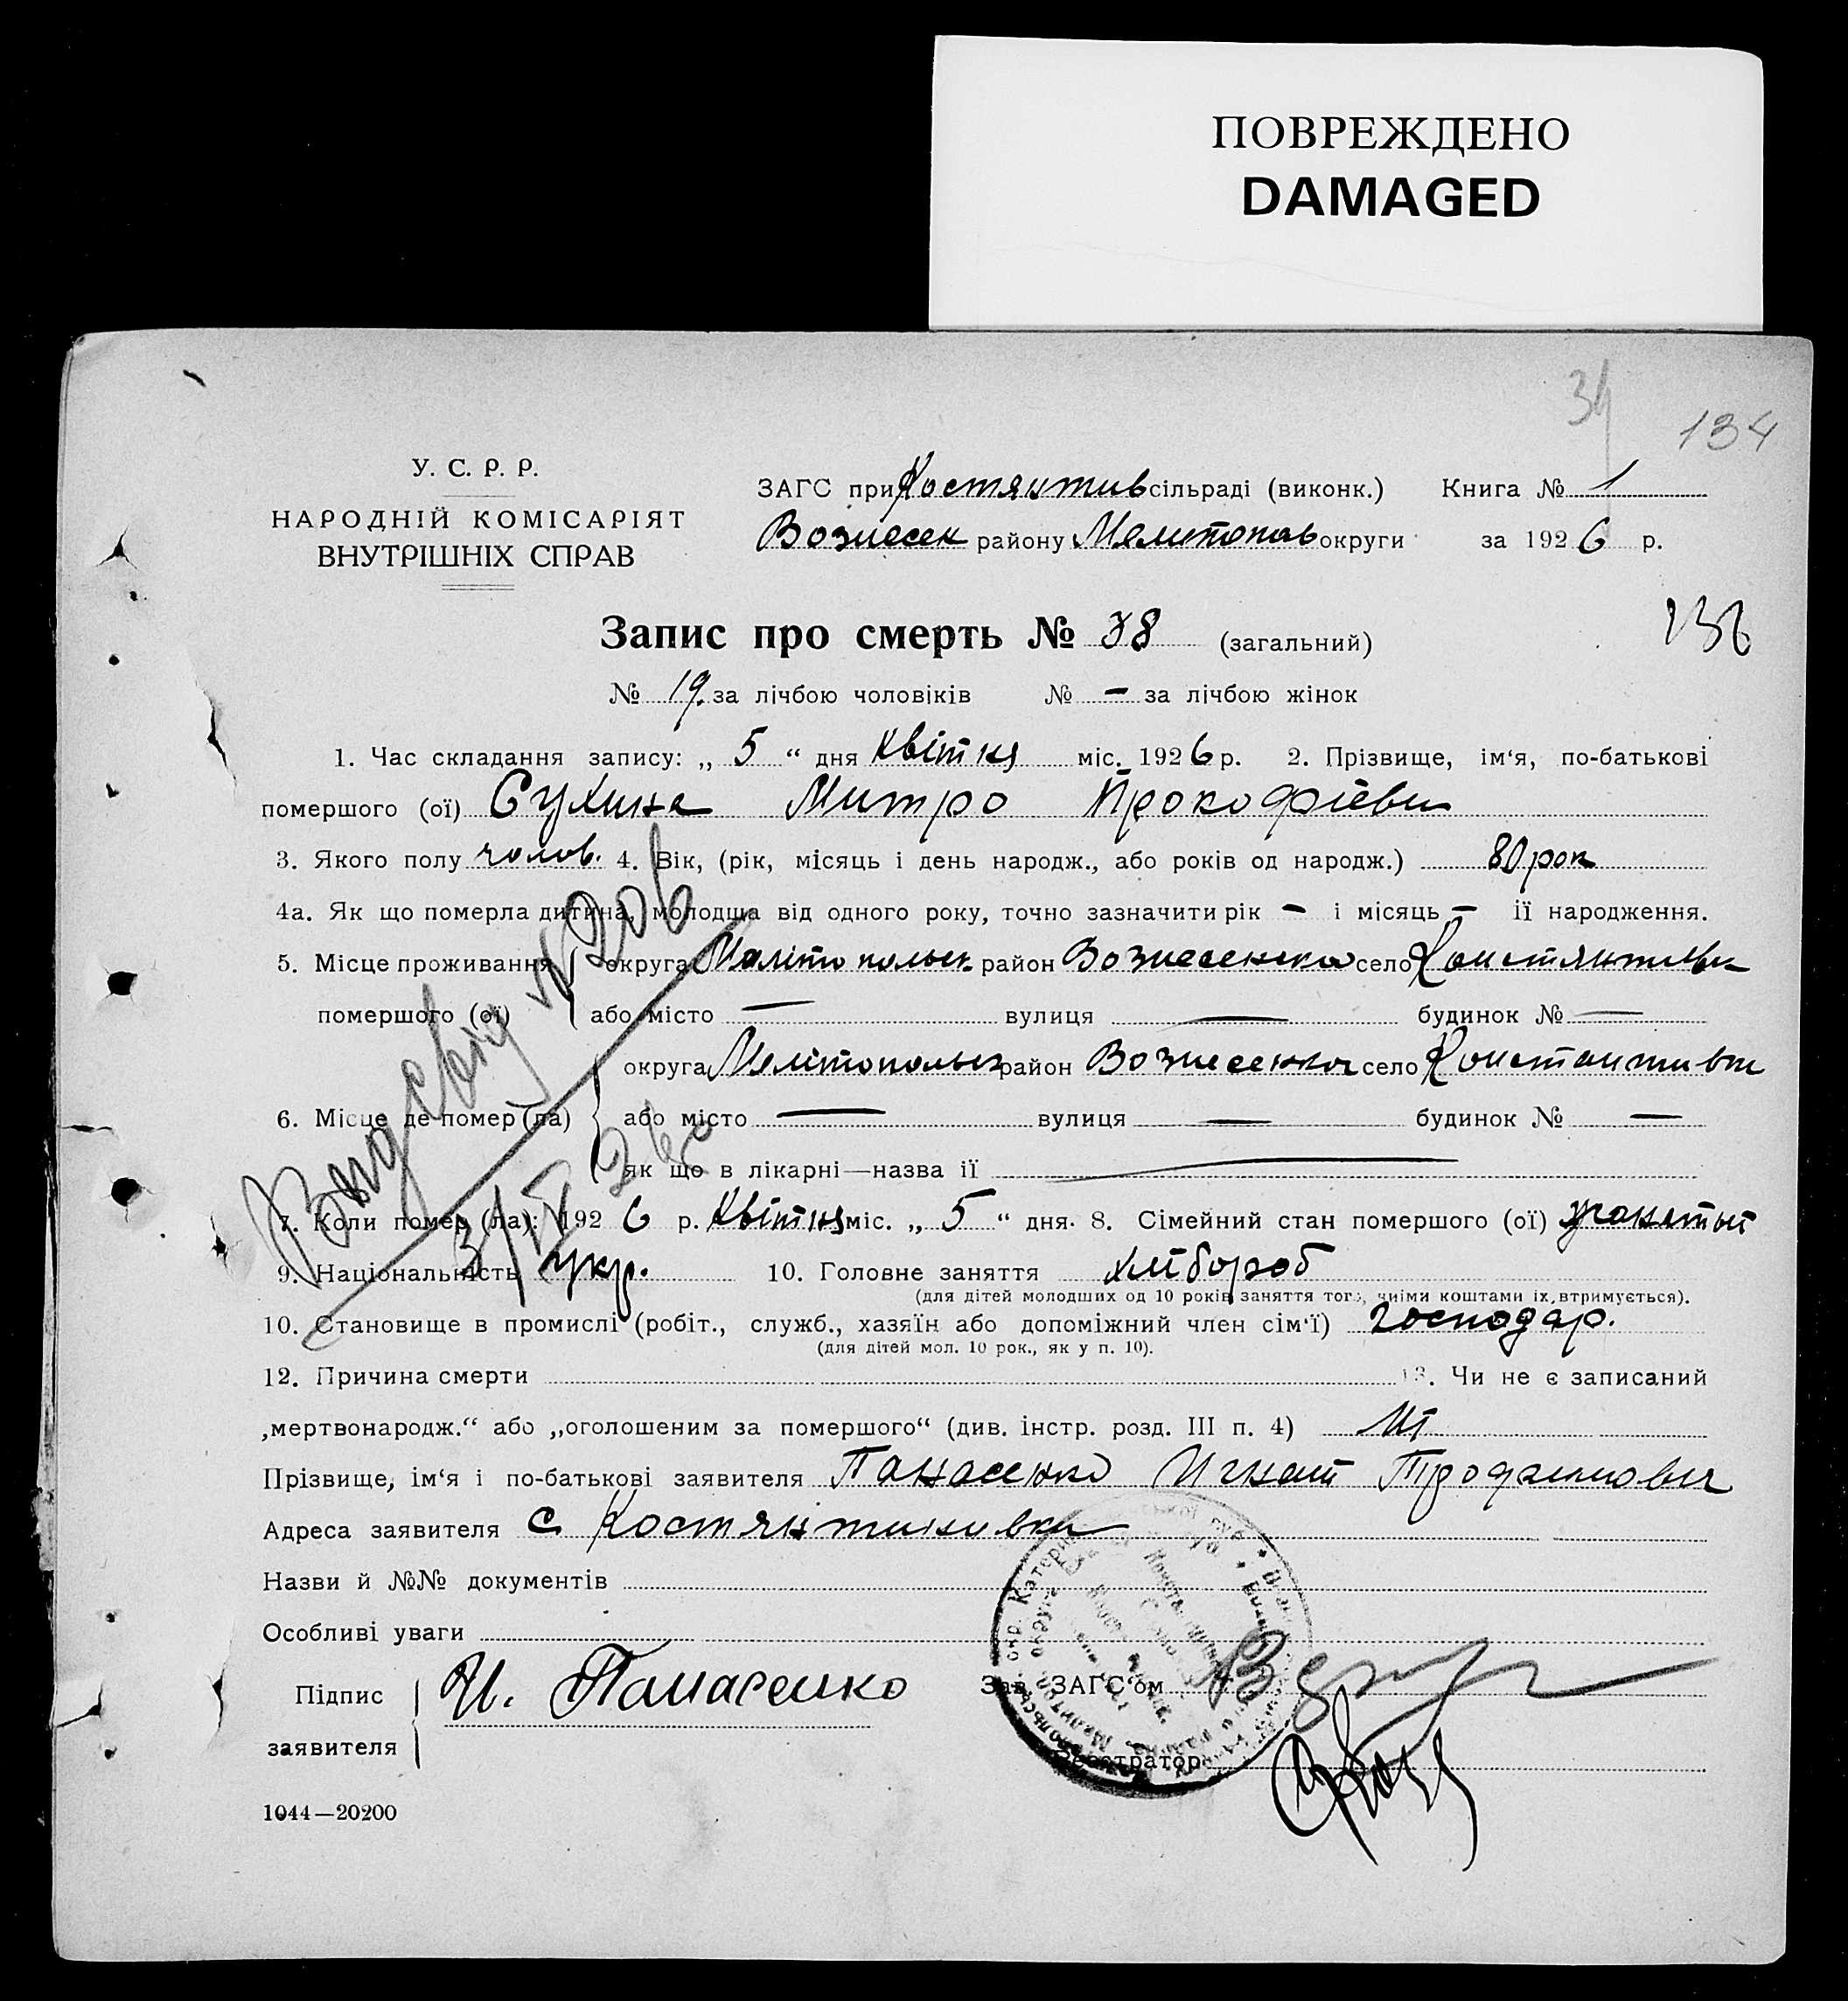 ПОВРЕЖДЕНО
DAMAGED
34
134
У. С. Р. Р.
НАРОДНІЙ КОМІСАРІЯТ
ВНУТРІШНІХ СПРАВ
ЗАГС при Костянтив сільраді (виконк.) Книга № 1
Вознесен району Мелитопав округи за 1926 р.
Запис про смерть № 38 (загальний)
136
№ 19. за лічбою чоловіків № — за лічбою жінок
1. Час складання запису: „ 5 “ дня квітня міс. 1926 р. 2. Прізвище, ім‘я, по-батькові
помершого (ої) Сухина Митро Прокофіеви
3. Якого полу чолов. 4. Вік, (рік, місяць і день народж., або років од народж.) 80 рок
4а. Як що померла дитина, молодща від одного року, точно зазначити рік — і місяць — її народження.
5. Місце проживання округа Мелітопольск район Вознесенка село Констянтивки
помершого (ої) або місто — вулиця — будинок № —
округа Мелітопольск район Вознесенка село Константивки
6. Місце де помер (ла) або місто — вулиця — будинок № —
як що в лікарні—назва її —
7. Коли помер (ла): 1926 р. квітня міс. „ 5 “ дня. 8. Сімейний стан помершого (ої) жанатый
9. Національність укр. 10. Головне заняття хлібороб
(для дітей молодших од 10 років заняття того, чиїми коштами їх втримується).
10. Становище в промислі (робіт., служб., хазяїн або допоміжний член сім‘ї) господар.
(для дітей мол. 10 рок., як у п. 10).
12. Причина смерти 13. Чи не є записаний
„мертвонародж.“ або „оголошеним за помершого“ (див. інстр. розд. III п. 4) Ні
Прізвище, ім‘я і по-батькові заявителя Панасенко Игнат Трофимович
Адреса заявителя с Костянтинивки
Назви й №№ документів
Особливі уваги
Підпис
заявителя
И. Панасенко
Зав. ЗАГС‘ом
Реєстратор
1044—20200